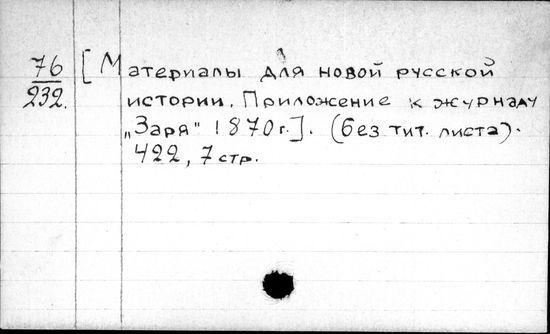 76 [Материалы для новой русской
232. истории. Приложение к журналу
„Заря" 1870г.]. (без тит. листа).
422, 7 стр.